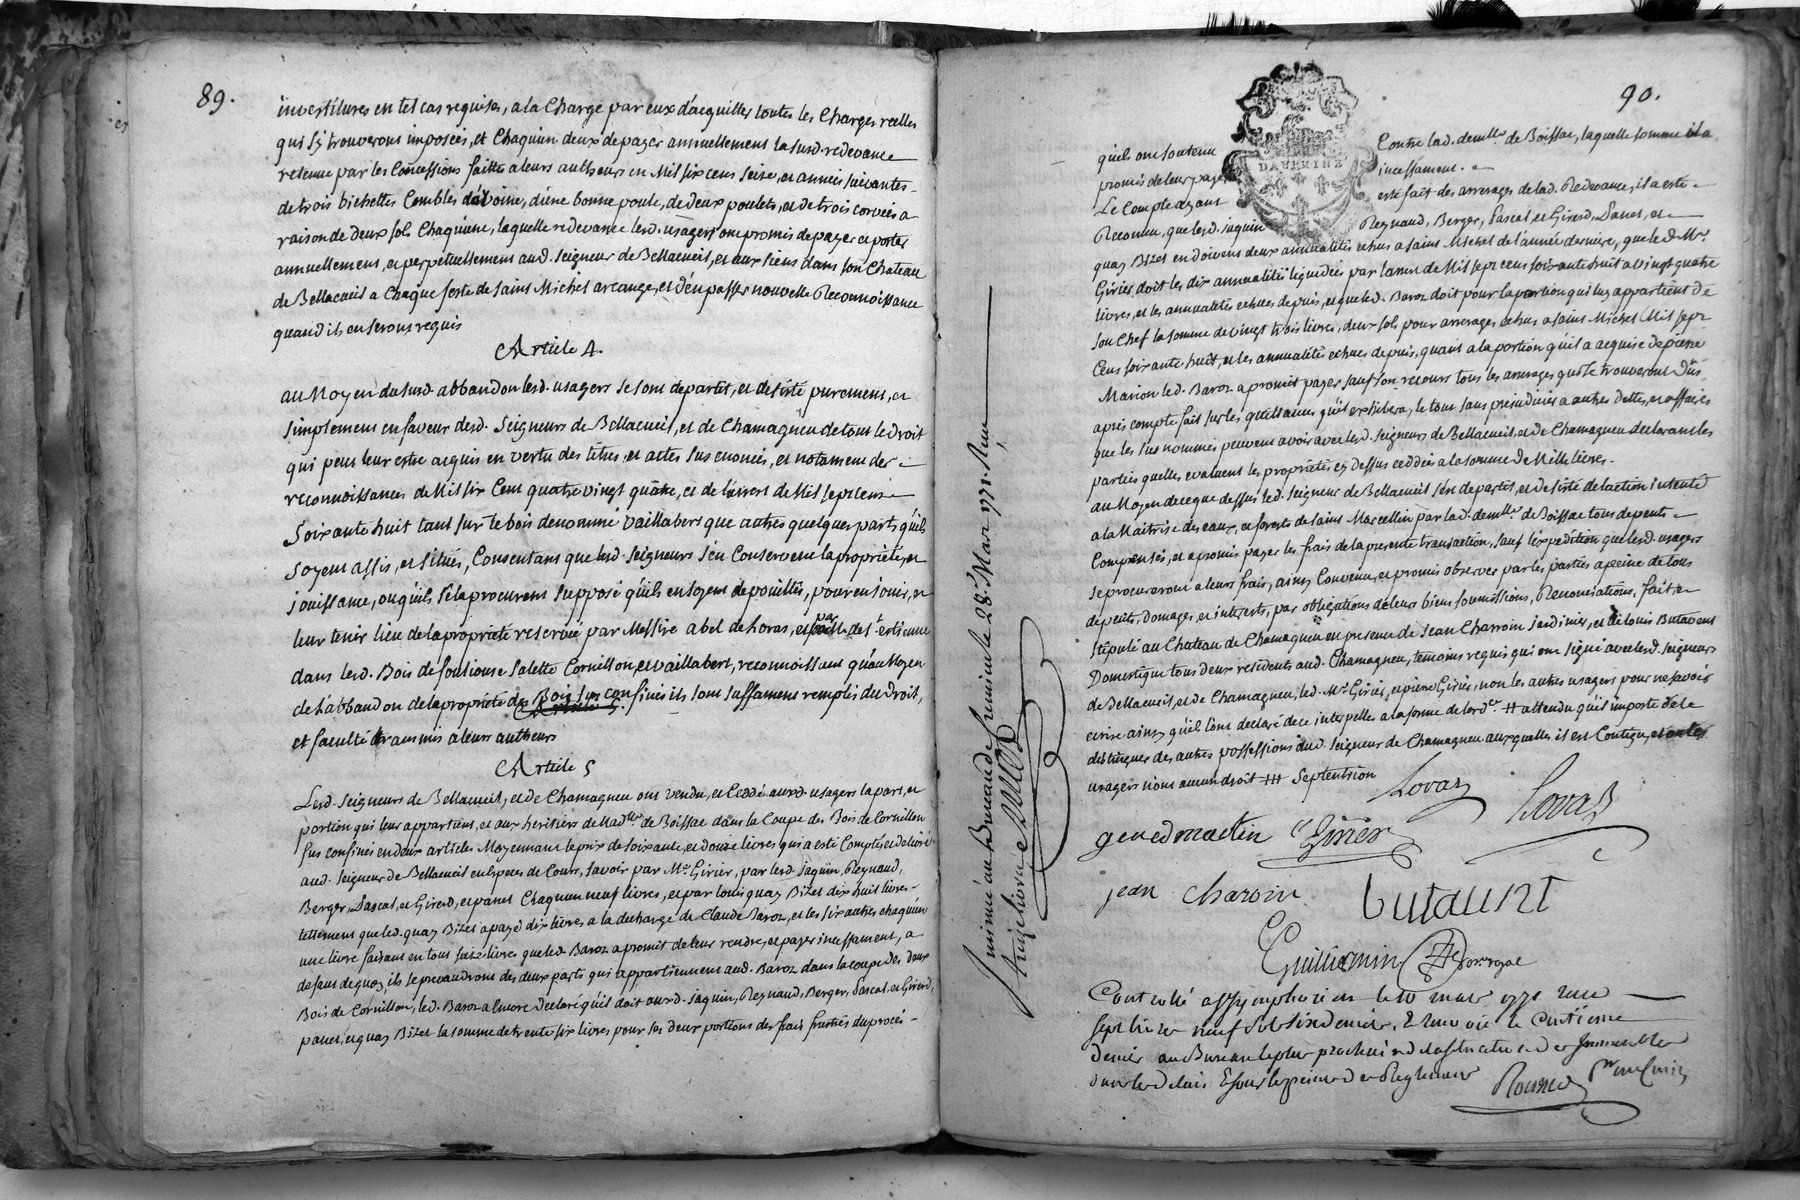 89.
investitures en tel cas requises, a la Charge par eux d'acquitter toutes les Charges reelles
qui s'y trouveront imposées, et Chaquun deux de payer annuellement la susd. redevance
retenue par les Concessions faittes a leurs autheurs en Mil six cens seize, et années suivantes
de trois bichettes Combles d'avoine, d'une bonne poule, de deux poulets, et de trois corvées a
raison de deux sols Chaquune, laquelle redevance lesd. usagers ont promis de payer et porter
annuellement, et perpetuellement aud. Seigneur de Bellacueil, et aux siens dans son Chateau
de Bellacueil a Chaque feste de saint Michel arcange, et d'en passer nouvelle Reconnoissance
quand ils en seront requis
Article 4.
au Moyen du susd. abbandon lesd. usagers se sont departis, et desisté purement, et
simplement en faveur desd. Seigneurs de Bellacueil, et de Chamagneu de tout le droit
qui peut leur estre acquis en vertu des titres et actes sus enoncés, et notament des
reconnoissances de Mil six Cent quatre vingt quatre, et de l'arrest de Mil sept cens
Soixante huit tant sur le bois denommé vaillabert que autres quelques parts qu'ils
soyent assis, et situés, Consentans que lesd. Seigneurs s'en Conservent la proprieté, et
jouissance, ou qu'ils se la procurent supposé qu'ils en soyent depouillés, pour en jouir, et
leur tenir lieu de la proprieté reservée par Messire abel de loras, et par celle de st. estienne
dans lesd. Bois de foulouse Salette Cornillon, et vaillabert, reconnoissant qu'au Moyen
de l'abbandon de la proprieté des Bois sus confinés ils sont suffament remplis du droit,
et faculté transmis a leurs autheurs
Article 5
Lesd. Seigneurs de Bellacueil, et de Chamagneu ont vendu, et Ceddé auxd. usagers la part, et
portion qui leur appartient, et aux heritiers de Mad.lle de Boissac dans la Coupe des Bois de Cornillon
sus confinés en deux articles Moyennant le prix de soixante, et douze livres qui a esté Compté, et delivré
aud. Seigneur de Bellacueil en Especes de Cours, savoir par Mr. Girier, par lesd. jaquin, Reynaud,
Berger, Pascal, et Girerd, et panet Chaquun neuf livres, et par louis quay Bizet dix huit livres
tellement que led. quay Bizet a payé dix livres a la decharge de Claude Baroz, et les six autres chaquun
une livre faisant en tout saize livres que led. Baroz a promit de leur rendre, et payer incessament, a
defaut de quoy ils se prevaudront des deux parts qui appartiennent aud. Baroz dans la coupe des deux
Bois de Cornillon, led. Baroz a Encore declaré qu'il doit auxd. jaquin, Reynaud, Berger, Pascal, et Girerd,
panet, et quay Bizet la somme de trente six livres pour ses deux portions des frais frustrés du procés
90.
qu'ils ont soutenu Contre lad. demlle. de Boissac, laquelle somme il a
promis de leur payer incessament.
Le Compte ayant esté fait des arrerages de lad. Redevance, il a esté
Reconnu, que lesd. jaquin Reynaud, Berger, Pascal, et Girerd, Panet, et
quay Bizet en doivent deux annualités echus a saint Michel de l'année derniere, que led. Mr.
Girier doit les dix annualités liquidées par l'arrest de Mil sept cens soixante huit a vingt quatre
livres, et les annualités echues depuis, et que led. Baroz doit pour la portion qui luy appartient de
son Chef la somme de vingt trois livres, deux sols pour arrerages echus a saint Michel Mil sept
Cens soixante huit, et les annualités echues depuis, quant a la portion qu'il a acquise de pierre
Marion led. Baroz a promit payer sauf son recours tous les arrerages qui se trouveront Dus
aprés compte fait sur les quittances qu'il exhibera, le tout sans prejudicier a autres dettes, et affaires
que les sus nommés peuvent avoir avec lesd. Seigneurs de Bellacueil, et de Chamagneu declarant les
parties quelles evaluent les proprietés cy dessus ceddées a la somme de Mille livres.
au Moyen de ce que dessus led. Seigneur de Bellacueil s'est departit, et desisté de l'action intenté
a la Maitrise des eaux, et forests de saint Marcellin par lad. demlle. de Boissac tous depents
Compensés, et a promis payer les frais de la presente transaction, sauf l'expedition que lesd. usagers
se procureront a leurs frais, ainsy Convenu, et promis observer par les parties a peine de tous
depents, domages, et interests, par obligations de leurs biens soumissions, Renonciations, fait et
stipulé au Chateau de Chamagneu en presence de Jean Charroin jardinier, et de louis Butavent
Domestique tous deux residents aud. Chamagneu, temoins requis qui ont signé avec lesd. Seigneurs
de Bellacueil, et de Chamagneu, led. Mr. Girier, et pierre Girier, non les autres usagers pour ne savoir
ecrire ainsy qu'il l'ont declaré de ce interpelles a la forme de lordce. # attendu qu'il importe de le
distinguer des autres possessions dud. Seigneur de Chamagneu auxquelles il est Contigu,
usagers n'ont aucun droit ## Septentrion
Loras Loras
Girier
jean Charoin butavant
Guilliermin No.re royal
Controllé a le 10 mars 1771 reçu
sept livres neuf sols six deniers, Renvoié le Centieme
denier au Bureau
dans les delais Sous les peines des Reglements
Insinué au Bureau de Cremieu le 28e. Mars 1771. Reçu